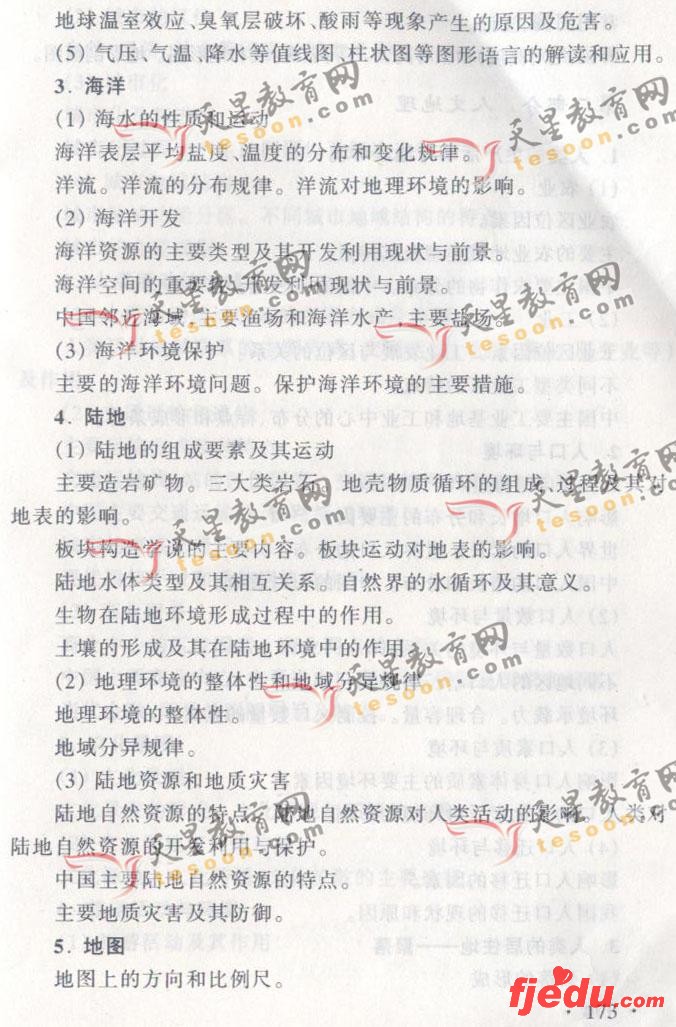 地球温室效应、臭氧层破坏、酸雨等现象产生的原因及危害。
(5) 气压、气温、降水等值线图、柱状图等图形语言的解读和应用。
3. 海洋
(1) 海水的性质和运动
海洋表层平均盐度、温度的分布和变化规律。
洋流。洋流的分布规律。洋流对地理环境的影响。
(2) 海洋开发
海洋资源的主要类型及其开发利用现状与前景。
海洋空间的重要性、开发利用现状与前景。
中国邻近海域,主要渔场和海洋水产,主要盐场。
(3) 海洋环境保护
主要的海洋环境问题。保护海洋环境的主要措施。
4. 陆地
(1) 陆地的组成要素及其运动
主要造岩矿物。三大类岩石。地壳物质循环的组成、过程及其对
地表的影响。
板块构造学说的主要内容。板块运动对地表的影响。
陆地水体类型及其相互关系。自然界的水循环及其意义。
生物在陆地环境形成过程中的作用。
土壤的形成及其在陆地环境中的作用。
(2) 地理环境的整体性和地域分异规律
地理环境的整体性。
地域分异规律。
(3) 陆地资源和地质灾害
陆地自然资源的特点。陆地自然资源对人类活动的影响。人类对
陆地自然资源的开发利用与保护。
中国主要陆地自然资源的特点。
主要地质灾害及其防御。
5. 地图
地图上的方向和比例尺。
· 173 ·
天星教育网
tesoon.com
天星教育网
tesoon.com
天星教育网
tesoon.com
天星教育网
tesoon.com
天星教育网
tesoon.com
天星教育网
tesoon.com
天星教育网
tesoon.com
天星教育网
tesoon.com
fjedu.com